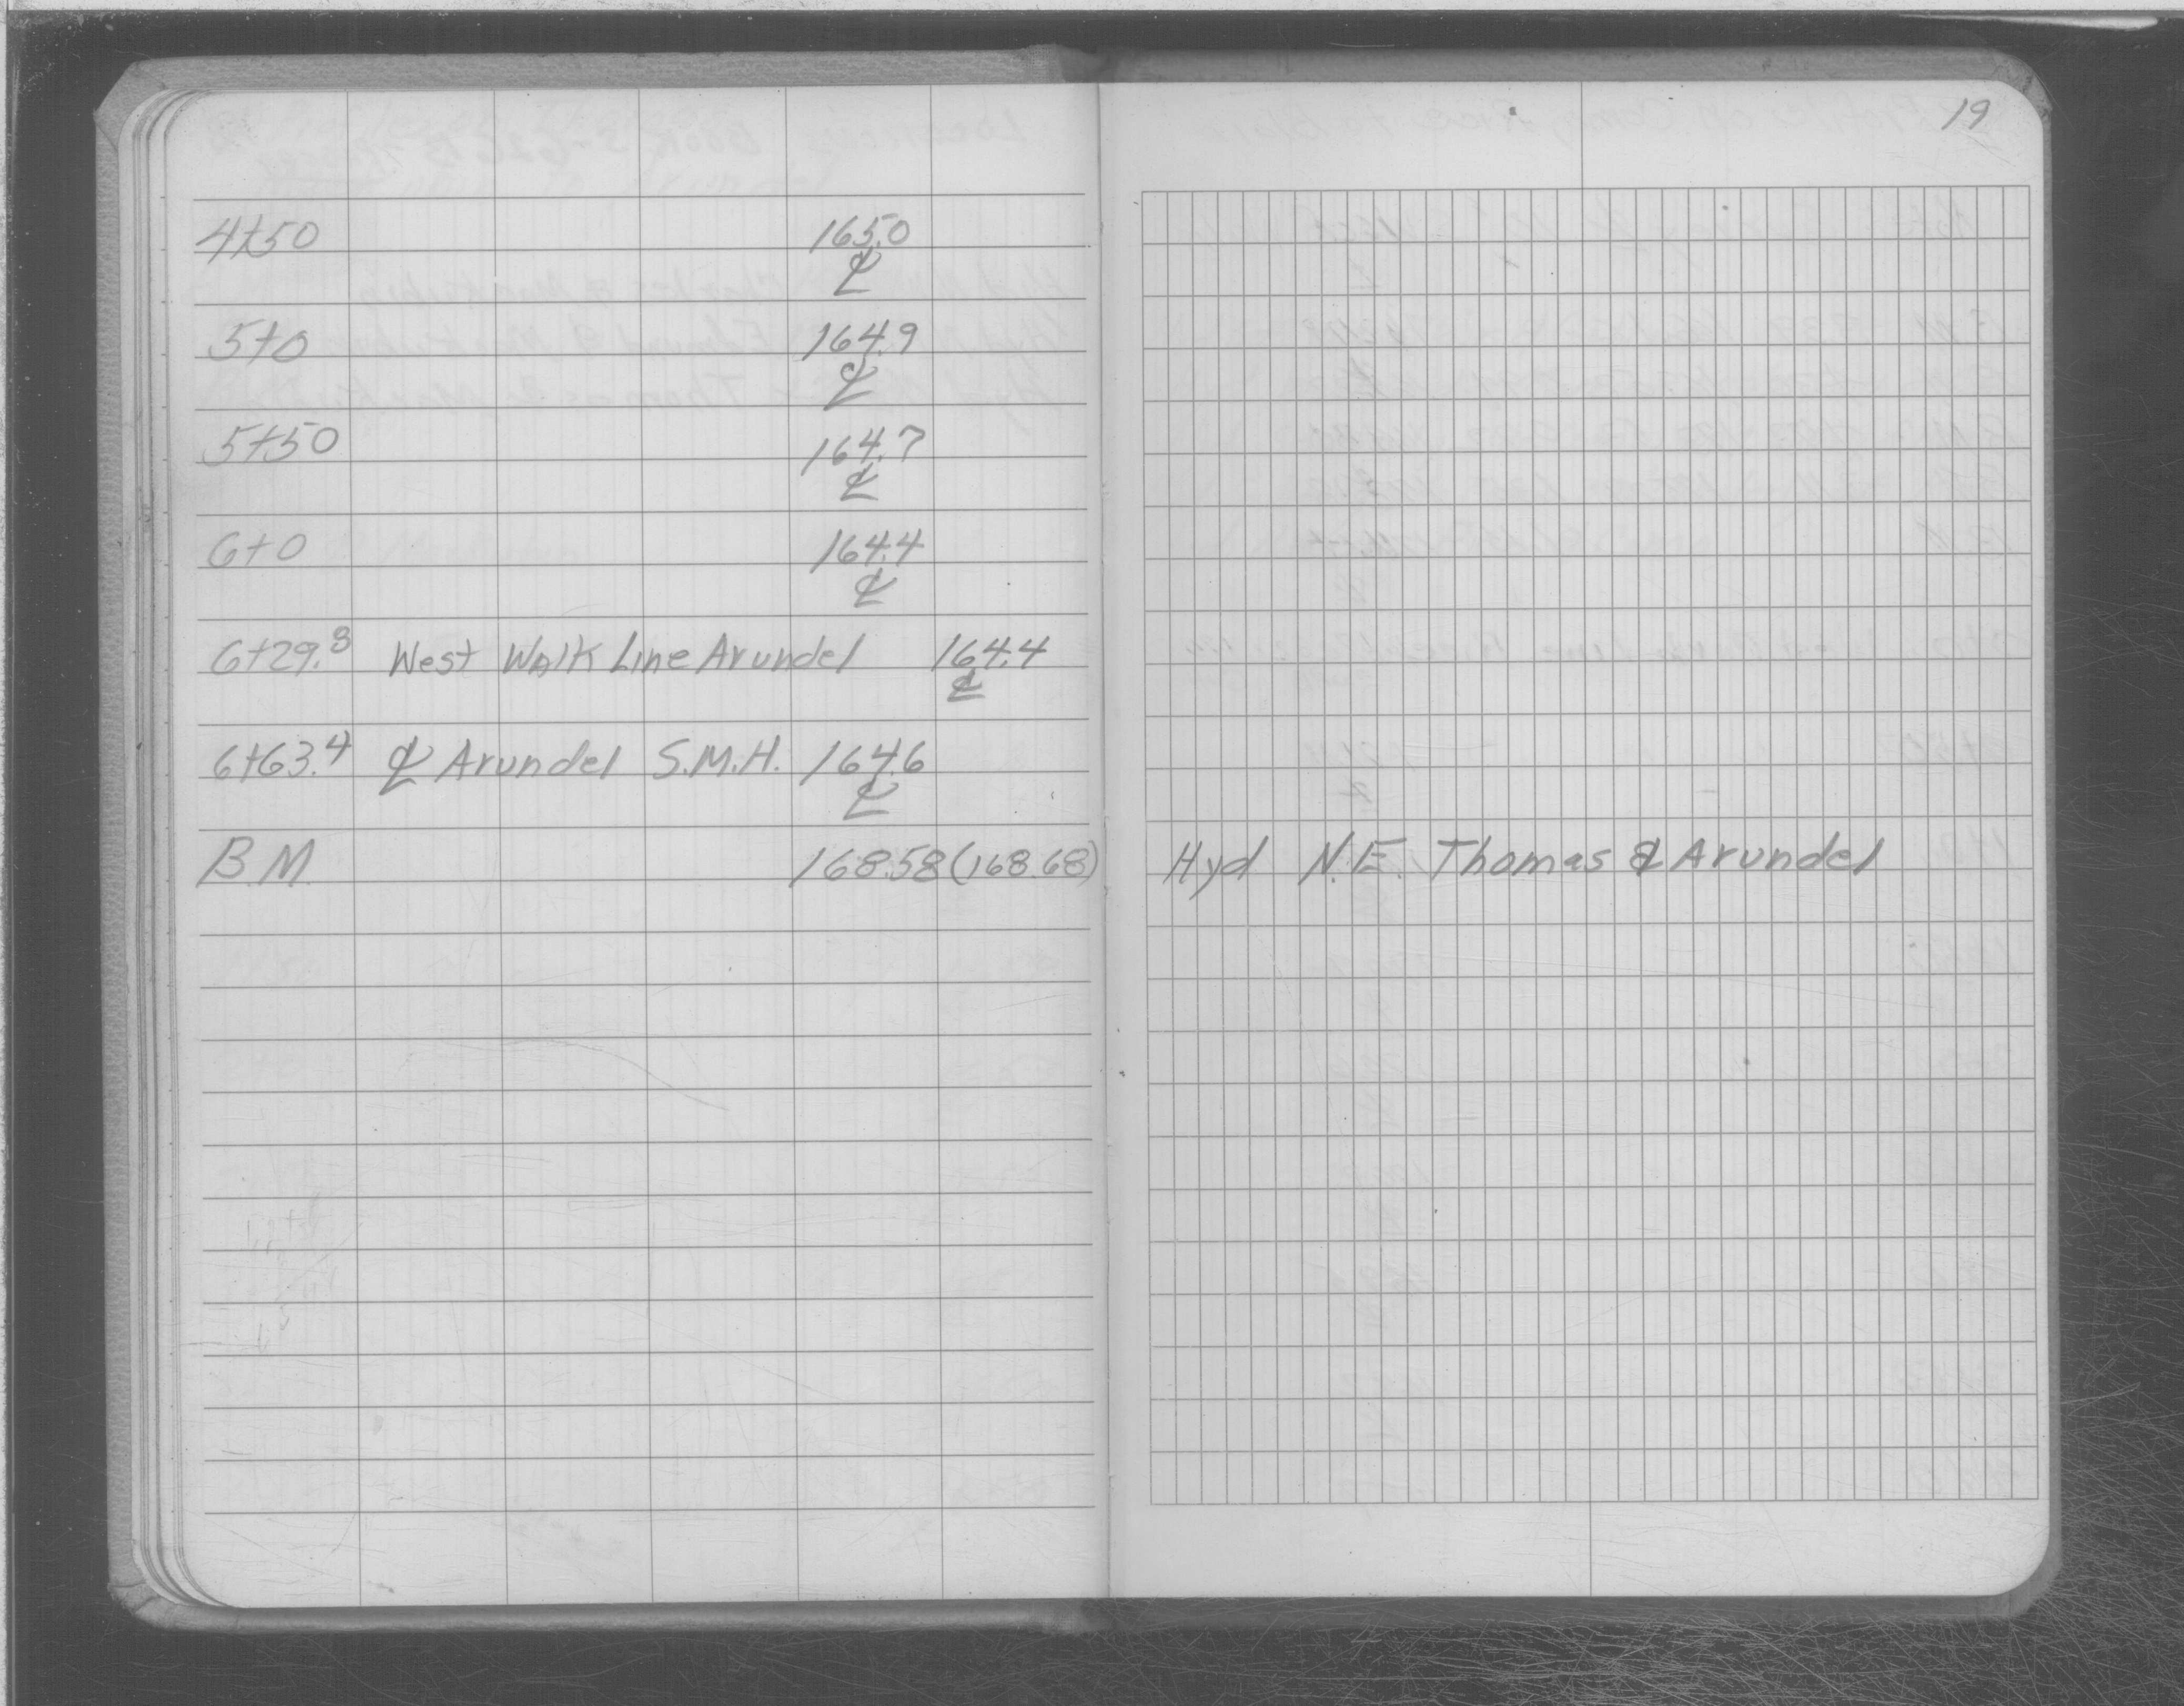 19
4+50 165.0
℄
5+0 164.9
℄
5+50 164.7
℄
6+0 164.4
℄
6+29.8 West Walk Line Arundel 164.4
℄
6+63.4 ℄ Arundel S.M.H. 164.6
℄
B.M. 168.58 (168.68) Hyd N.E. Thomas & Arundel